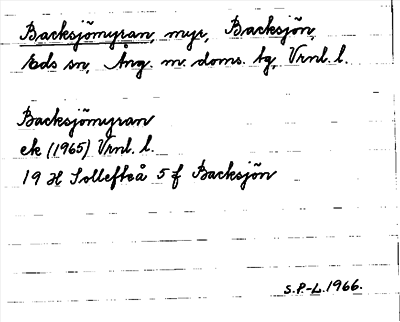 Backsjömyran, myr, Backsjön,
Eds sn, Ång. m. doms. tg, Vrnl. l.
Backsjömyran
ek (1965) Vrnl. l.
19 H Sollefteå 5 f Backsjön
S.P-L. 1966.